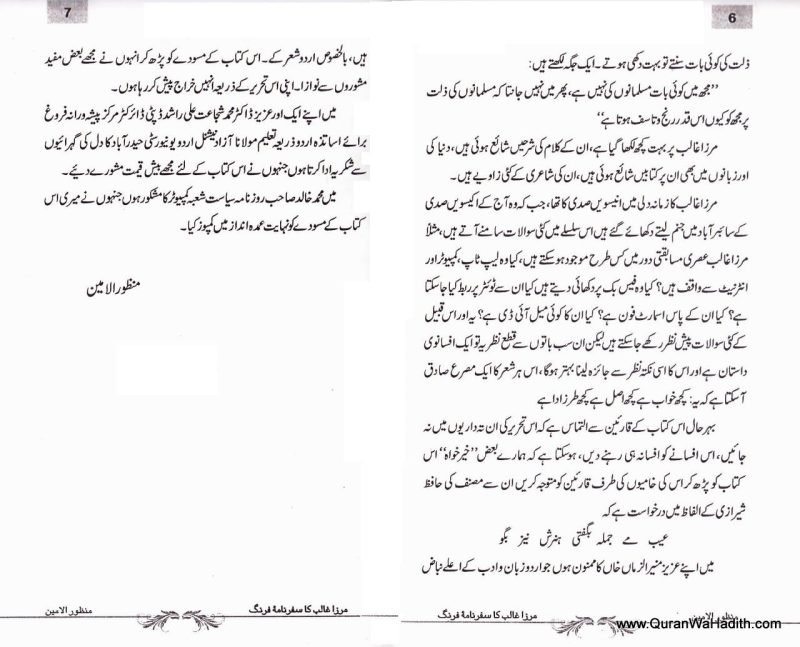 6
ذلت کی کوئی بات سنتے تو بہت دکھی ہوتے۔ ایک جگہ لکھتے ہیں:
”مجھ میں کوئی بات مسلمانوں کی نہیں ہے، پھر میں نہیں جانتا کہ مسلمانوں کی ذلت
پر مجھ کو کیوں اس قدر رنج و تاسف ہوتا ہے“
مرزا غالب پر بہت کچھ لکھا گیا ہے، ان کے کلام کی شرحیں شائع ہوئی ہیں، دنیا کی
اور زبانوں میں بھی ان پر کتابیں شائع ہوئی ہیں، ان کی شاعری کے کئی زاویے ہیں۔
مرزا غالب کا زمانہ دلی میں انیسویں صدی کا تھا، جب کہ وہ آج کے اکیسویں صدی
کے سائبر آباد میں جنم لیتے دکھائے گئے ہیں اس سلسلے میں کئی سوالات سامنے آتے ہیں، مثلاً
مرزا غالب عصری مسابقتی دور میں کس طرح موجود ہو سکتے ہیں، کیا وہ لیپ ٹاپ، کمپیوٹر اور
انٹرنیٹ سے واقف ہیں؟ کیا وہ فیس بک پر دکھائی دیتے ہیں کیا ان سے ٹوئٹر پر ربط کیا جا سکتا
ہے؟ کیا ان کے پاس اسمارٹ فون ہے؟ کیا ان کا کوئی میل آئی ڈی ہے؟ یہ اور اس قبیل
کے کئی سوالات پیش نظر رکھے جا سکتے ہیں لیکن ان سب باتوں سے قطع نظر یہ تو ایک افسانوی
داستان ہے اور اس کا اسی نکتہ نظر سے جائزہ لینا بہتر ہوگا، اس ہر شعر کا ایک مصرع صادق
آ سکتا ہے کہ یہ: کچھ خواب ہے کچھ اصل ہے کچھ طرز ادا ہے
بہر حال اس کتاب کے قارئین سے التماس ہے کہ اس تحریر کی ان تہ داریوں میں نہ
جائیں، اس افسانے کو افسانہ ہی رہنے دیں، ہو سکتا ہے کہ ہمارے بعض ”خیر خواہ“ اس
کتاب کو پڑھ کر اس کی خامیوں کی طرف قارئین کو متوجہ کریں ان سے مصنف کی حافظ
شیرازی کے الفاظ میں درخواست ہے کہ
عیب مے جملہ بگفتی ہنرش نیز بگو
میں اپنے عزیز منیر الزماں خاں کا ممنون ہوں جو اردو زبان و ادب کے اعلےٰ نباض
مرزا غالب کا سفرنامۂ فرنگ
منظور الامین
7
ہیں، بالخصوص اردو شعر کے۔ اس کتاب کے مسودے کو پڑھ کر انہوں نے مجھے بعض مفید
مشوروں سے نوازا۔ اپنی اس تحریر کے ذریعہ انہیں خراج پیش کر رہا ہوں۔
میں اپنے ایک اور عزیز ڈاکٹر محمد شجاعت علی راشد ڈپٹی ڈائرکٹر مرکز پیشہ ورانہ فروغ
برائے اساتذہ اردو ذریعہ تعلیم مولانا آزاد نیشنل اردو یونیورسٹی حیدرآباد کا دل کی گہرائیوں
سے شکریہ ادا کرتا ہوں جنہوں نے اس کتاب کے لئے مجھے بیش قیمت مشورے دئیے۔
میں محمد خالد صاحب روزنامہ سیاست شعبہ کمپیوٹر کا مشکور ہوں جنہوں نے میری اس
کتاب کے مسودے کو نہایت عمدہ انداز میں کمپوز کیا۔
منظور الامین
مرزا غالب کا سفرنامۂ فرنگ
منظور الامین
www.QuranWaHadith.com